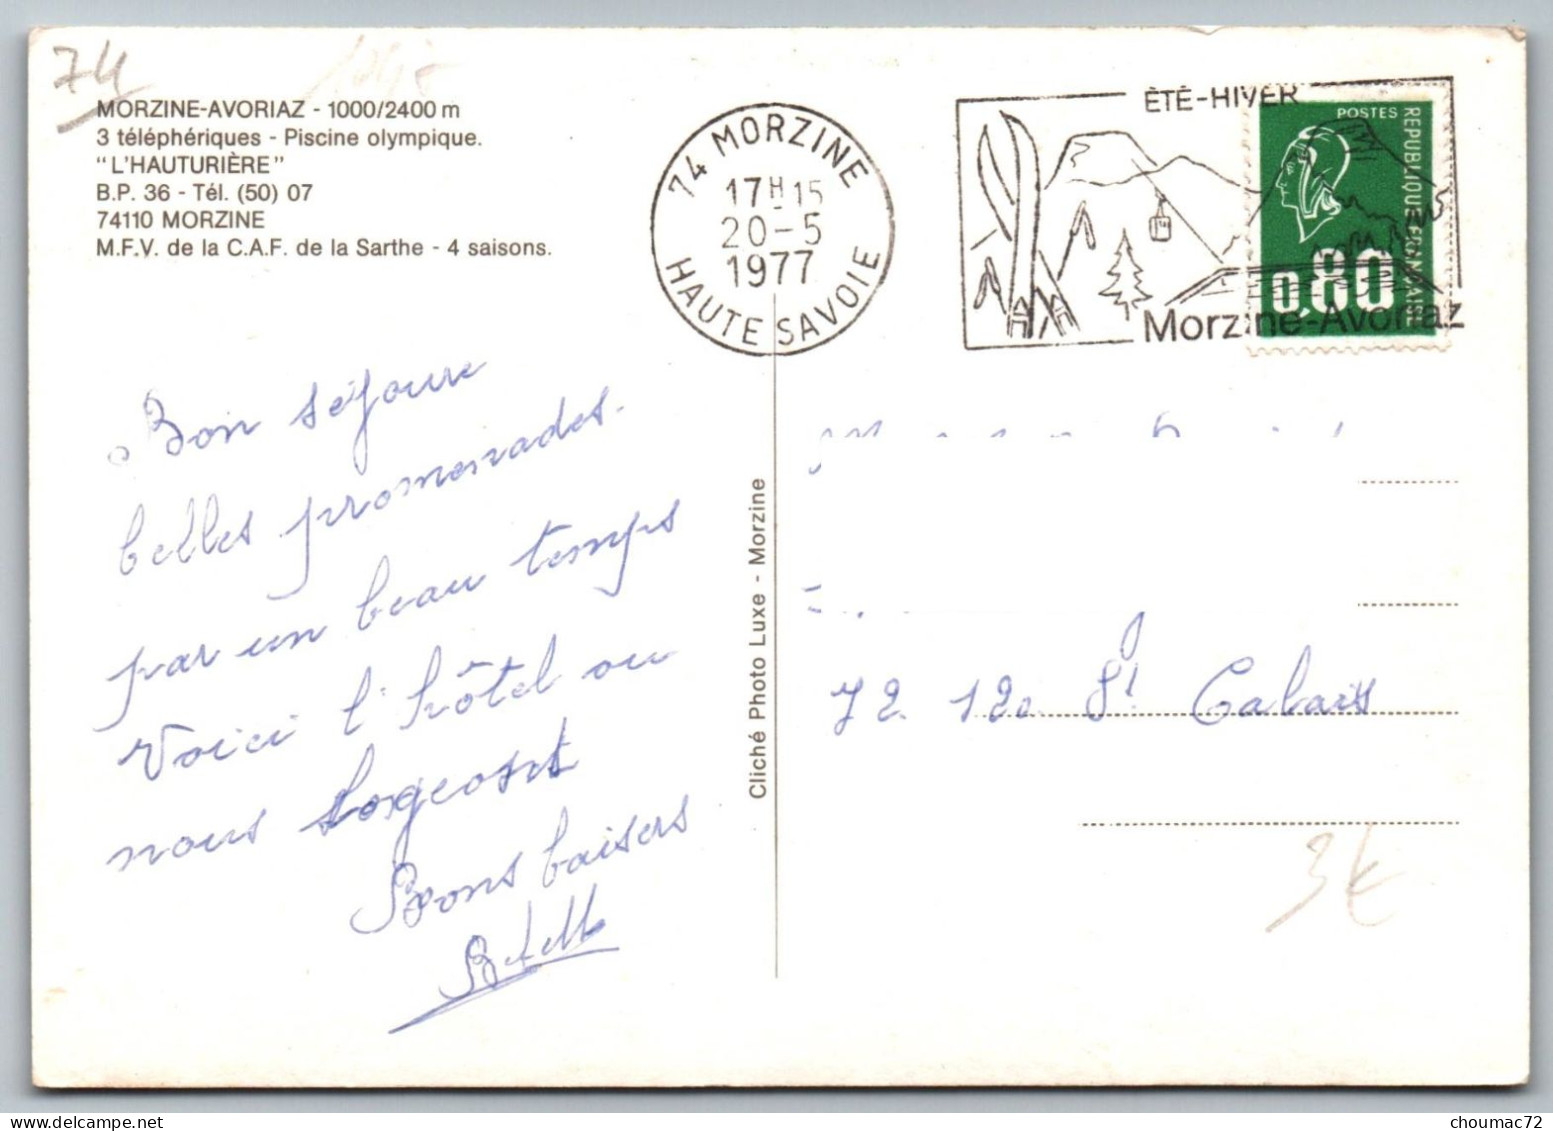 74
MORZINE-AVORIAZ - 1000/2400 m
3 téléphériques - Piscine olympique.
"L'HAUTURIÈRE"
B.P. 36 - Tél. (50) 07
74110 MORZINE
M.F.V. de la C.A.F. de la Sarthe - 4 saisons.
74 MORZINE
17H15
20-5
1977
HAUTE SAVOIE
ÉTÉ-HIVER
Morzine-Avoriaz
POSTES
REPUBLIQUE FRANÇAISE
0,80
Bon séjour
belles promenades.
par un beau temps
Voici l'hôtel ou
nous logeons
Bons baisers
Cliché Photo Luxe - Morzine
72 120 St Calais
3€
choumac72